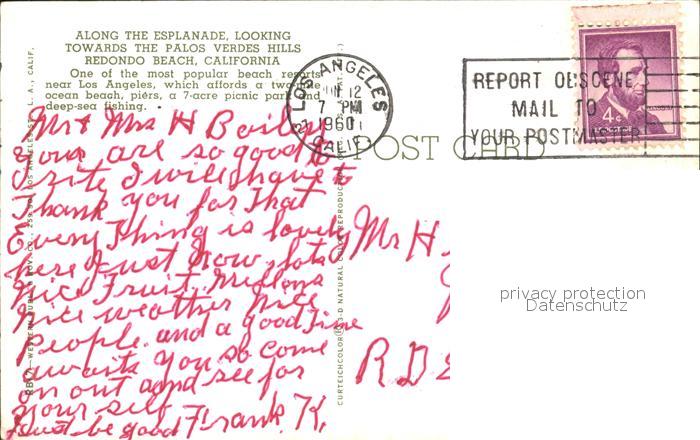 ALONG THE ESPLANADE, LOOKING
TOWARDS THE PALOS VERDES HILLS
REDONDO BEACH, CALIFORNIA
One of the most popular beach resorts
near Los Angeles, which affords a two-mile
ocean beach, piers, a 7-acre picnic park and
deep-sea fishing.
Mr & Mrs H Bailey
Yous are so good to
rite I will have to
Thank you for That
Every Thing is lovely
here Just now, lots
nice Fruit Mellons
nice weather nice
People and a good Time
awaits you so come
on out and see for
your self
Must be good Frank K,
POST CARD
LOS ANGELES
12
7 PM
1960
CALIF
REPORT OBSCENE
MAIL TO
YOUR POSTMASTER
4¢
Mr H
RD
privacy protection
Datenschutz